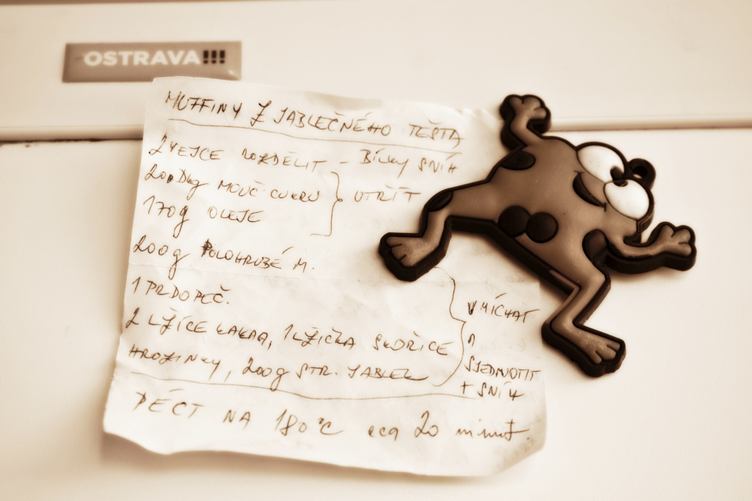 OSTRAVA!!!
MUFFINY Z JABLEČNÉHO TĚSTA
2 VEJCE ROZDĚLIT - BÍLKY SNÍH
200 MOUČ CUKRU
170g OLEJE
UTŘÍT
200g POLOHRUBÉ M.
1 PRDOPEČ.
2 LŽÍCE KAKAA, 1 LŽIČKA SKOŘICE
HROZINKY, 200g STR. JABLEK
VMÍCHAT
A
SJEDNOTIT
+ SNÍH
PÉCT NA 180°C cca 20 minut.